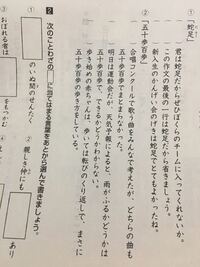 ①「蛇足」
君は蛇足だからぜひぼくらのチームに入ってくれないか。
この作文の最後の一行は蛇足だから省きましょう。
新入生のけんげい会のけきは蛇足でとてもよかったね。
②「五十歩百歩」
合唱コンクールで歌う曲をみんなで考えたが、どちらの曲も
五十歩百歩でまとまらなかった。
明日は運動会だが、天気予報によると、雨がふるかどうかは
五十歩百歩で、できるかどうかわからない。
歩き始めの赤ちゃんは、歩いては転びのくり返しで、まさに
五十歩百歩の歩き方をしている。
2 次のことわざの□に当てはまる言葉をあとから選んで書きましょう。
①
のいぬ間のせんたく
② 親しき仲にも
あり
③ おぼれる者は
をもつかむ